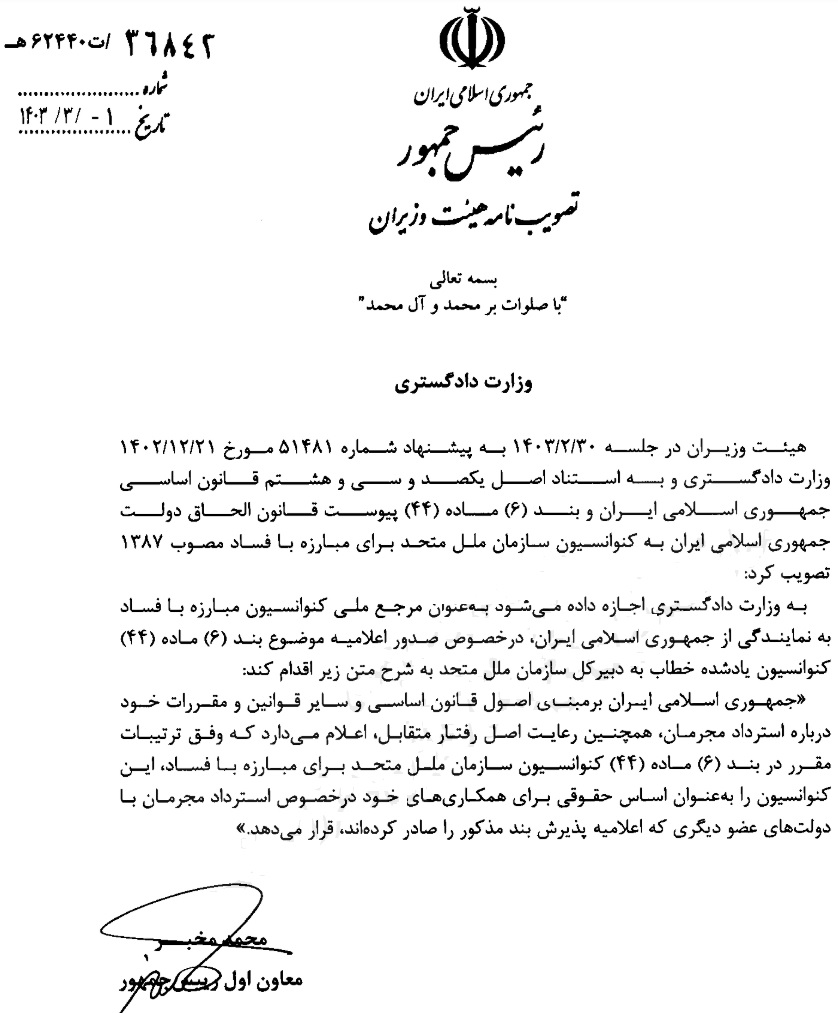 ۳۶۸۴۲ /ت۶۲۴۴۰هـ
شماره
تاریخ ۱۴۰۳/۳/-۱
جمهوری اسلامی ایران
رئیس جمهور
تصویب نامه هیئت وزیران
بسمه تعالی
"با صلوات بر محمد و آل محمد"
وزارت دادگستری
هیئت وزیران در جلسه ۱۴۰۳/۲/۳۰ به پیشنهاد شماره ۵۱۴۸۱ مورخ ۱۴۰۲/۱۲/۲۱
وزارت دادگستری و به استناد اصل یکصد و سی و هشتم قانون اساسی
جمهوری اسلامی ایران و بند (۶) ماده (۴۴) پیوست قانون الحاق دولت
جمهوری اسلامی ایران به کنوانسیون سازمان ملل متحد برای مبارزه با فساد مصوب ۱۳۸۷
تصویب کرد:
به وزارت دادگستری اجازه داده می‌شود به‌عنوان مرجع ملی کنوانسیون مبارزه با فساد
به نمایندگی از جمهوری اسلامی ایران، درخصوص صدور اعلامیه موضوع بند (۶) ماده (۴۴)
کنوانسیون یادشده خطاب به دبیرکل سازمان ملل متحد به شرح متن زیر اقدام کند:
«جمهوری اسلامی ایران برمبنای اصول قانون اساسی و سایر قوانین و مقررات خود
درباره استرداد مجرمان، همچنین رعایت اصل رفتار متقابل، اعلام می‌دارد که وفق ترتیبات
مقرر در بند (۶) ماده (۴۴) کنوانسیون سازمان ملل متحد برای مبارزه با فساد، این
کنوانسیون را به‌عنوان اساس حقوقی برای همکاری‌های خود درخصوص استرداد مجرمان با
دولت‌های عضو دیگری که اعلامیه پذیرش بند مذکور را صادر کرده‌اند، قرار می‌دهد.»
محمد مخبر
معاون اول رییس جمهور